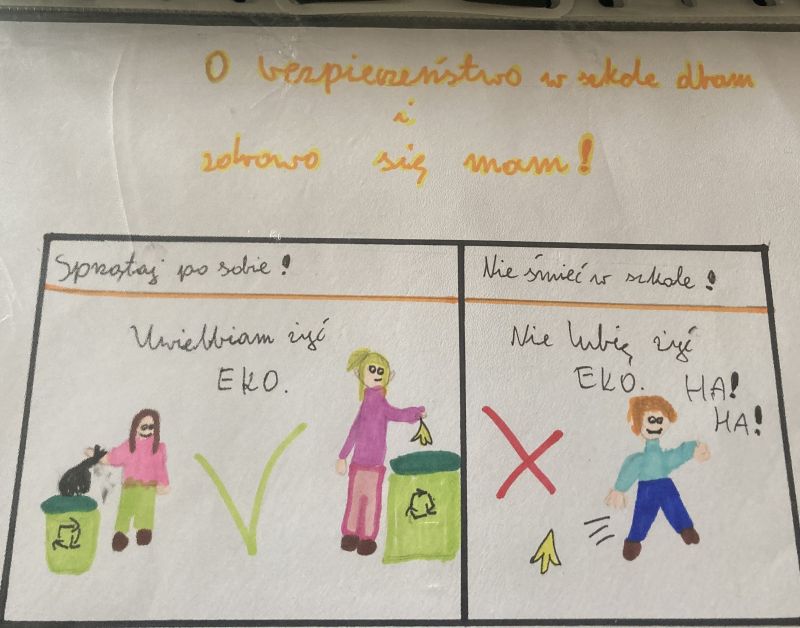 O bezpieczeństwo w szkole dbam
i
zdrowo się mam!
Sprzątaj po sobie!
Nie śmieć w szkole!
Uwielbiam żyć
EKO.
Nie lubię żyć
EKO.
HA!
HA!